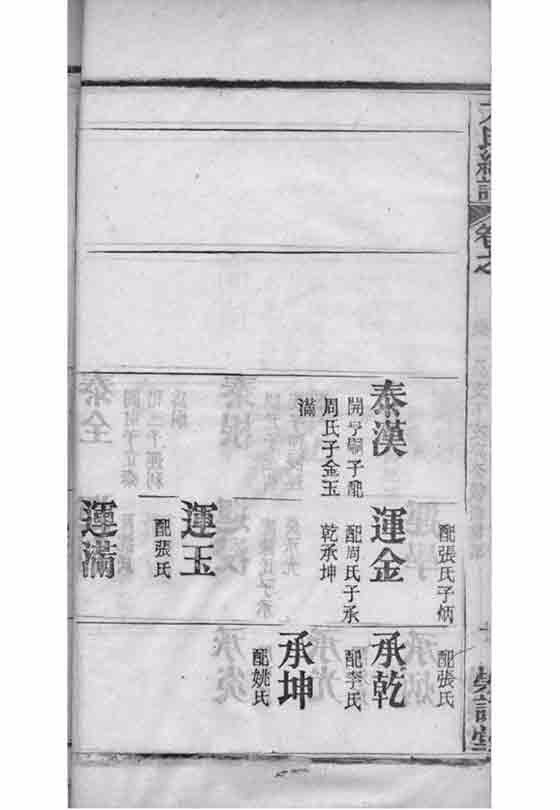 卷之
泰漢
開亨嗣子配
周氏子金玉
滿
配張氏子炳
運金
配周氏子承
乾承坤
運玉
配張氏
運滿
配張氏
承乾
配李氏
承坤
配姚氏